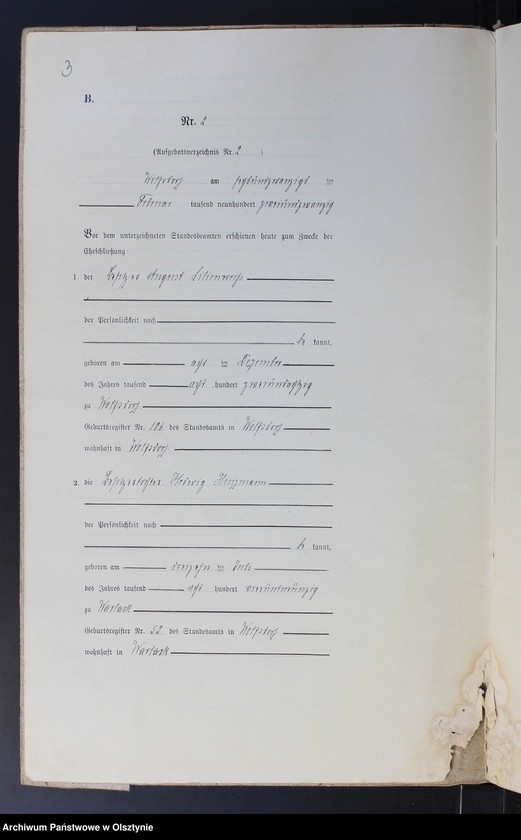 3
B.
Nr. 2
(Aufgebotsverzeichnis Nr. 2 )
Wolfsdorf am ten
Februar tausend neunhundert zweiundzwanzig
Vor dem unterzeichneten Standesbeamten erschienen heute zum Zwecke der
Eheschließung:
1. der Besitzer August
der Persönlichkeit nach
be kannt,
geboren am acht ten Dezember
des Jahres tausend acht hundert
zu Wolfsdorf
Geburtsregister Nr. 106 des Standesamts in Wolfsdorf
wohnhaft in Wolfsdorf
2. die Besitzertochter Hedwig
der Persönlichkeit nach
be kannt,
geboren am ten
des Jahres tausend acht hundert
zu Warlack
Geburtsregister Nr. 52 des Standesamts in Wolfsdorf
wohnhaft in Warlack
Archiwum Państwowe w Olsztynie